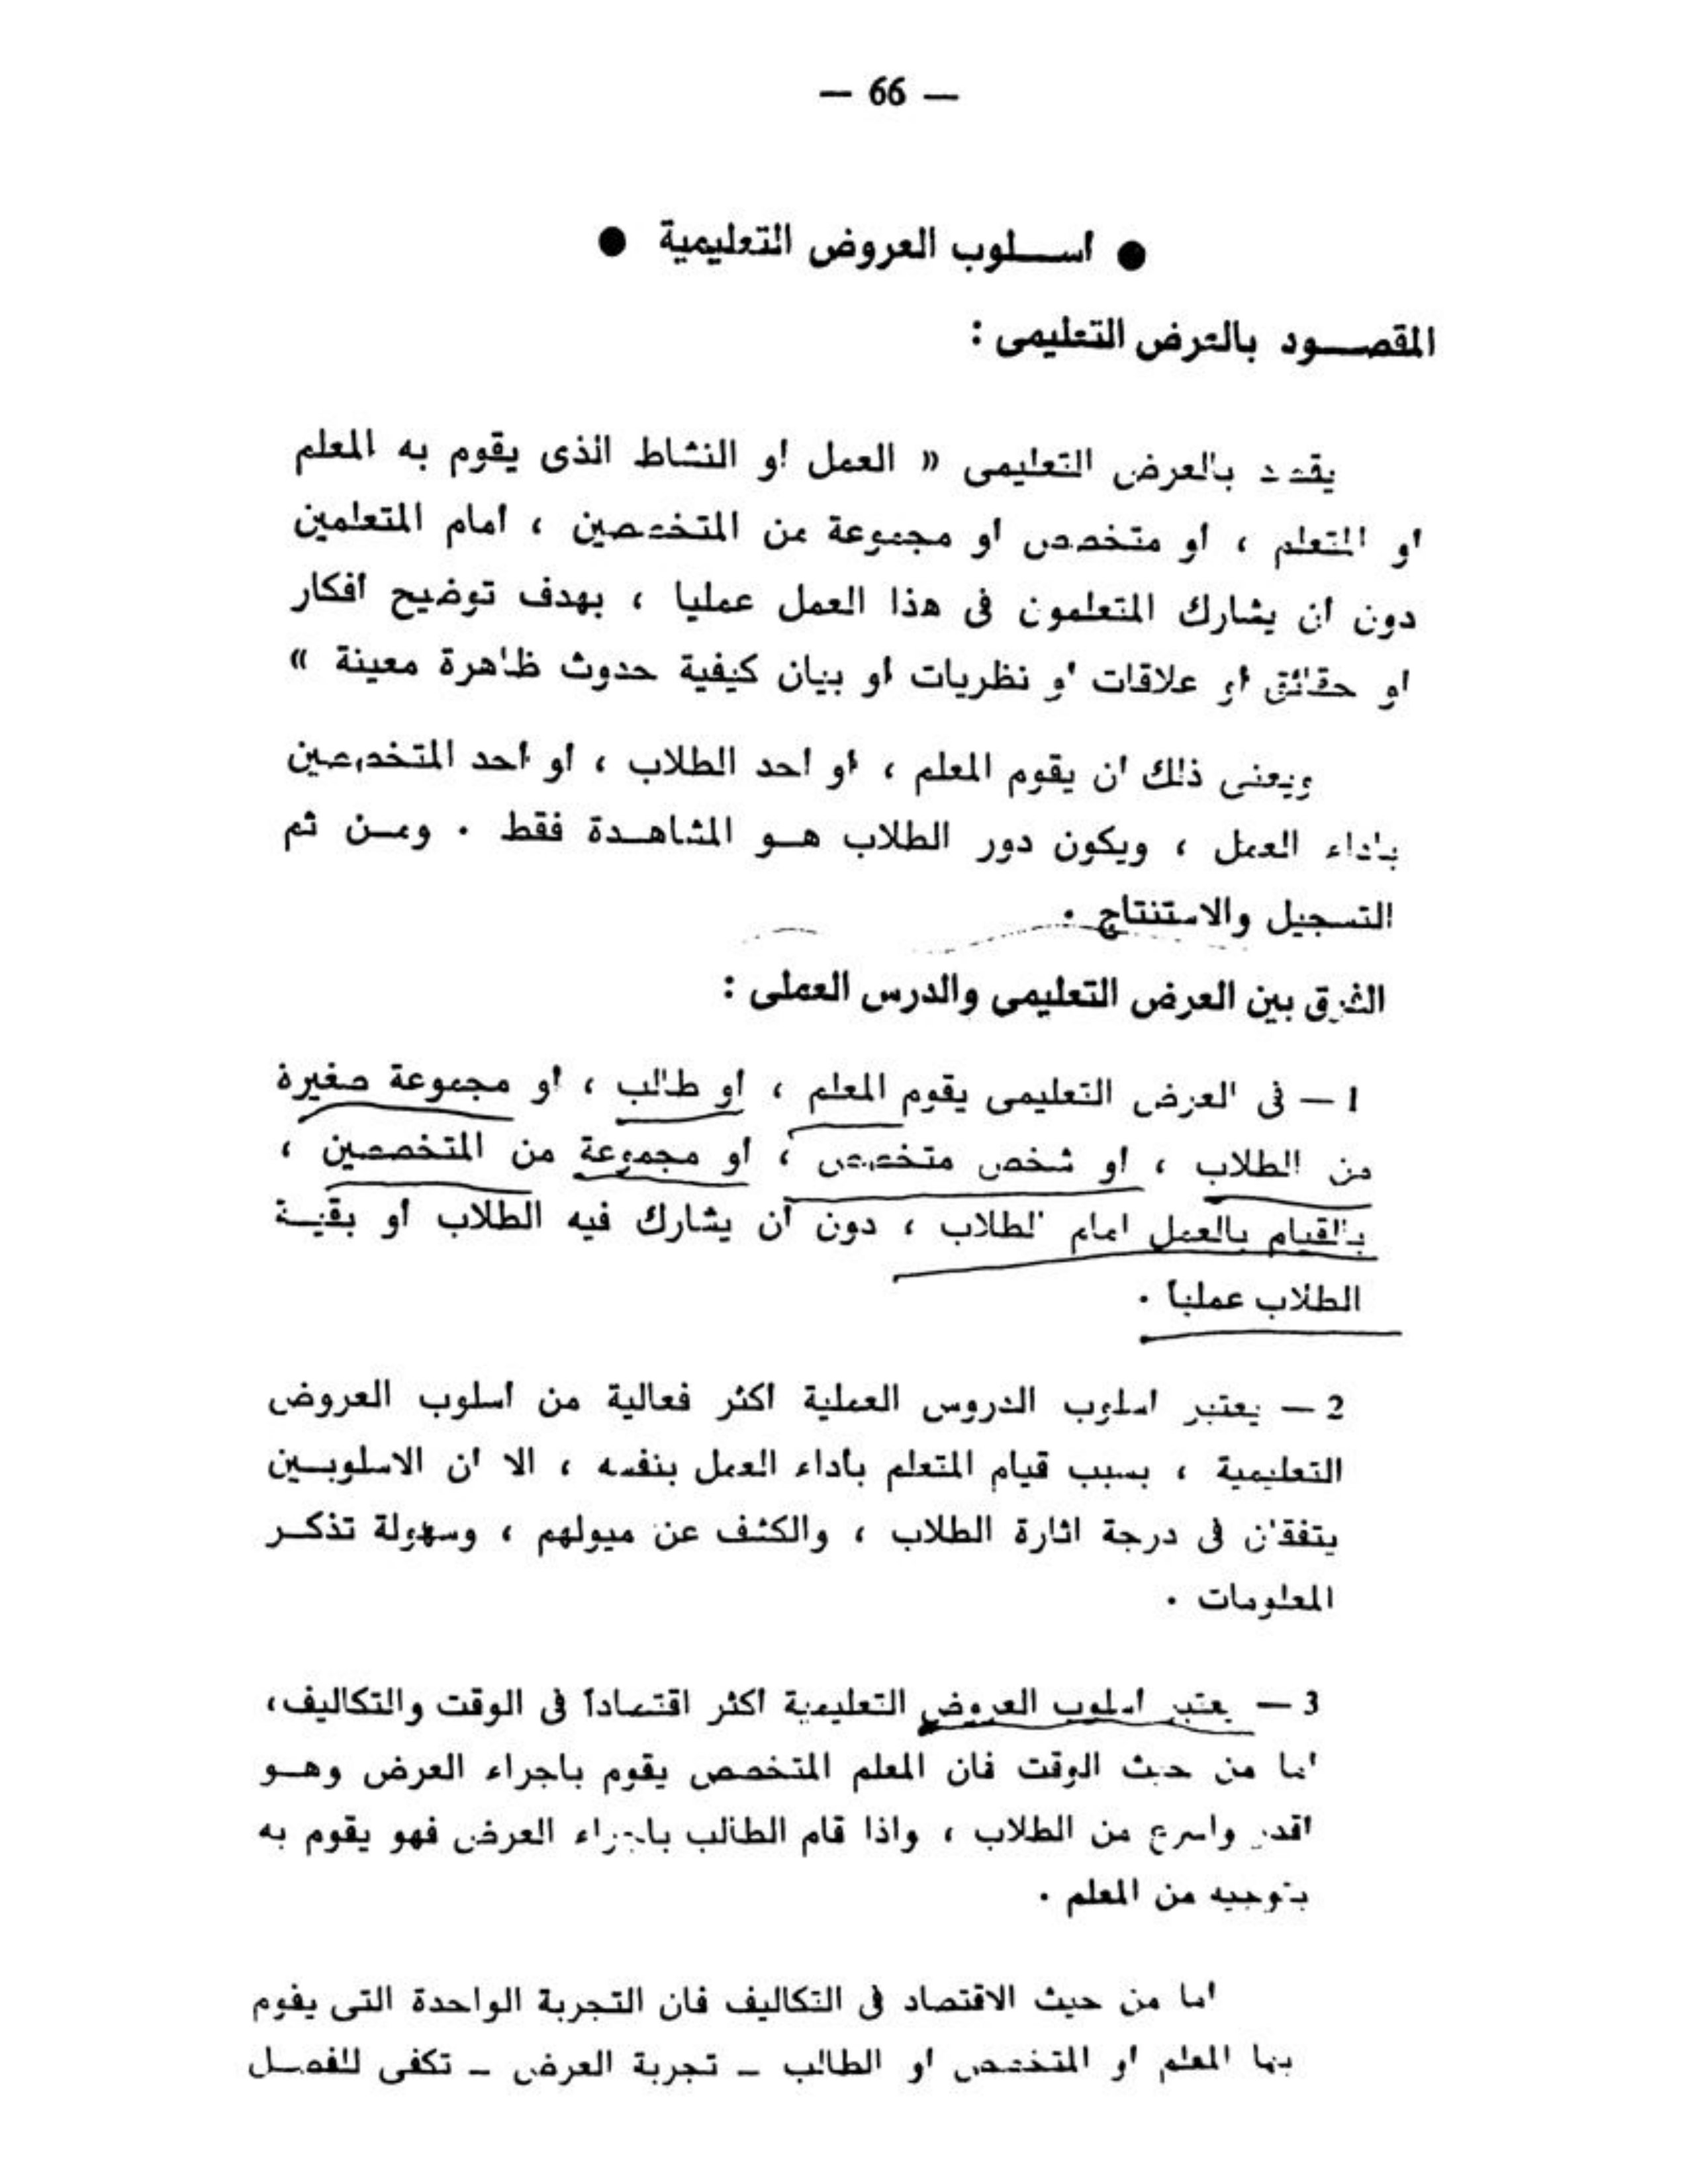 — 66 —
● اســـلوب العروض التعليمية ●
المقصـــود بالعرض التعليمى :
يقصد بالعرض التعليمى « العمل او النشاط الذى يقوم به المعلم
او المتعلم ، او متخصص او مجموعة من المتخصصين ، امام المتعلمين
دون ان يشارك المتعلمون فى هذا العمل عمليا ، بهدف توضيح افكار
او حقائق او علاقات او نظريات او بيان كيفية حدوث ظاهرة معينة »
ويعنى ذلك ان يقوم المعلم ، او احد الطلاب ، او احد المتخصصين
باداء العمل ، ويكون دور الطلاب هــو المشاهــدة فقط . ومــن ثم
التسجيل والاستنتاج .
الفرق بين العرض التعليمى والدرس العملى :
1 — فى العرض التعليمى يقوم المعلم ، او طالب ، او مجموعة صغيرة
من الطلاب ، او شخص متخصص ، او مجموعة من المتخصصين ،
بالقيام بالعمل امام الطلاب ، دون أن يشارك فيه الطلاب أو بقيــة
الطلاب عملياً .
2 — يعتبر اسلوب الدروس العملية اكثر فعالية من اسلوب العروض
التعليمية ، بسبب قيام المتعلم بأداء العمل بنفسه ، الا ان الاسلوبــين
يتفقان فى درجة اثارة الطلاب ، والكشف عن ميولهم ، وسهولة تذكــر
المعلومات .
3 — يعتبر اسلوب العروض التعليمية اكثر اقتصاداً فى الوقت والتكاليف،
اما من حيث الوقت فان المعلم المتخصص يقوم باجراء العرض وهــو
اقدر واسرع من الطلاب ، واذا قام الطالب باجراء العرض فهو يقوم به
بتوجيه من المعلم .
اما من حيث الاقتصاد فى التكاليف فان التجربة الواحدة التى يقوم
بها المعلم او المتخصص او الطالب ــ تجربة العرض ــ تكفى للفصــل